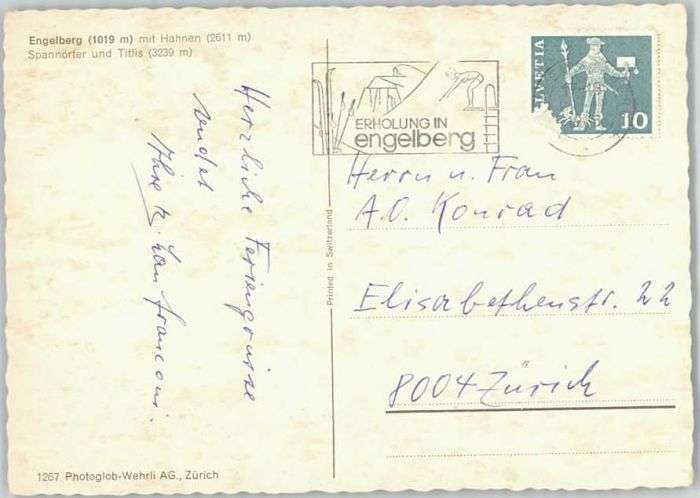 Engelberg (1019 m) mit Hahnen (2611 m)
Spannörter und Titlis (3239 m)
Herzliche Feriengrüsse
sendet
Ihre
ERHOLUNG IN
engelberg
HELVETIA
10
Herrn u. Frau
A.O. Konrad
Elisabethenstr. 22
8004 Zürich
Printed in Switzerland
1267 Photoglob-Wehrli AG., Zürich